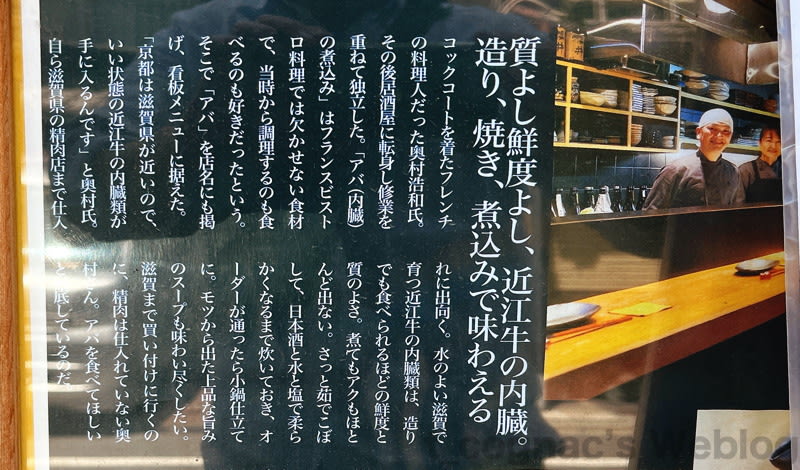 質よし鮮度よし、近江牛の内臓。
造り、焼き、煮込みで味わえる
コックコートを着たフレンチ
の料理人だった奥村浩和氏。
その後居酒屋に転身し修業を
重ねて独立した。「アバ(内臓)
の煮込み」はフランスビスト
ロ料理では欠かせない食材
で、当時から調理するのも食
べるのも好きだったという。
そこで「アバ」を店名にも掲
げ、看板メニューに据えた。
「京都は滋賀県が近いので、
いい状態の近江牛の内臓類が
手に入るんです」と奥村氏。
自ら滋賀県の精肉店まで仕入
れに出向く。水のよい滋賀で
育つ近江牛の内臓類は、造り
でも食べられるほどの鮮度と
質のよさ。煮てもアクもほと
んど出ない。さっと茹でこぼ
して、日本酒と水と塩で柔ら
かくなるまで炊いておき、オ
ーダーが通ったら小鍋仕立て
に。モツから出た上品な旨み
のスープも味わい尽くしたい。
滋賀まで買い付けに行くの
に、精肉は仕入れていない奥
村さん。アバを食べてほしい
と、徹底しているのだ。
cognac's Weblog